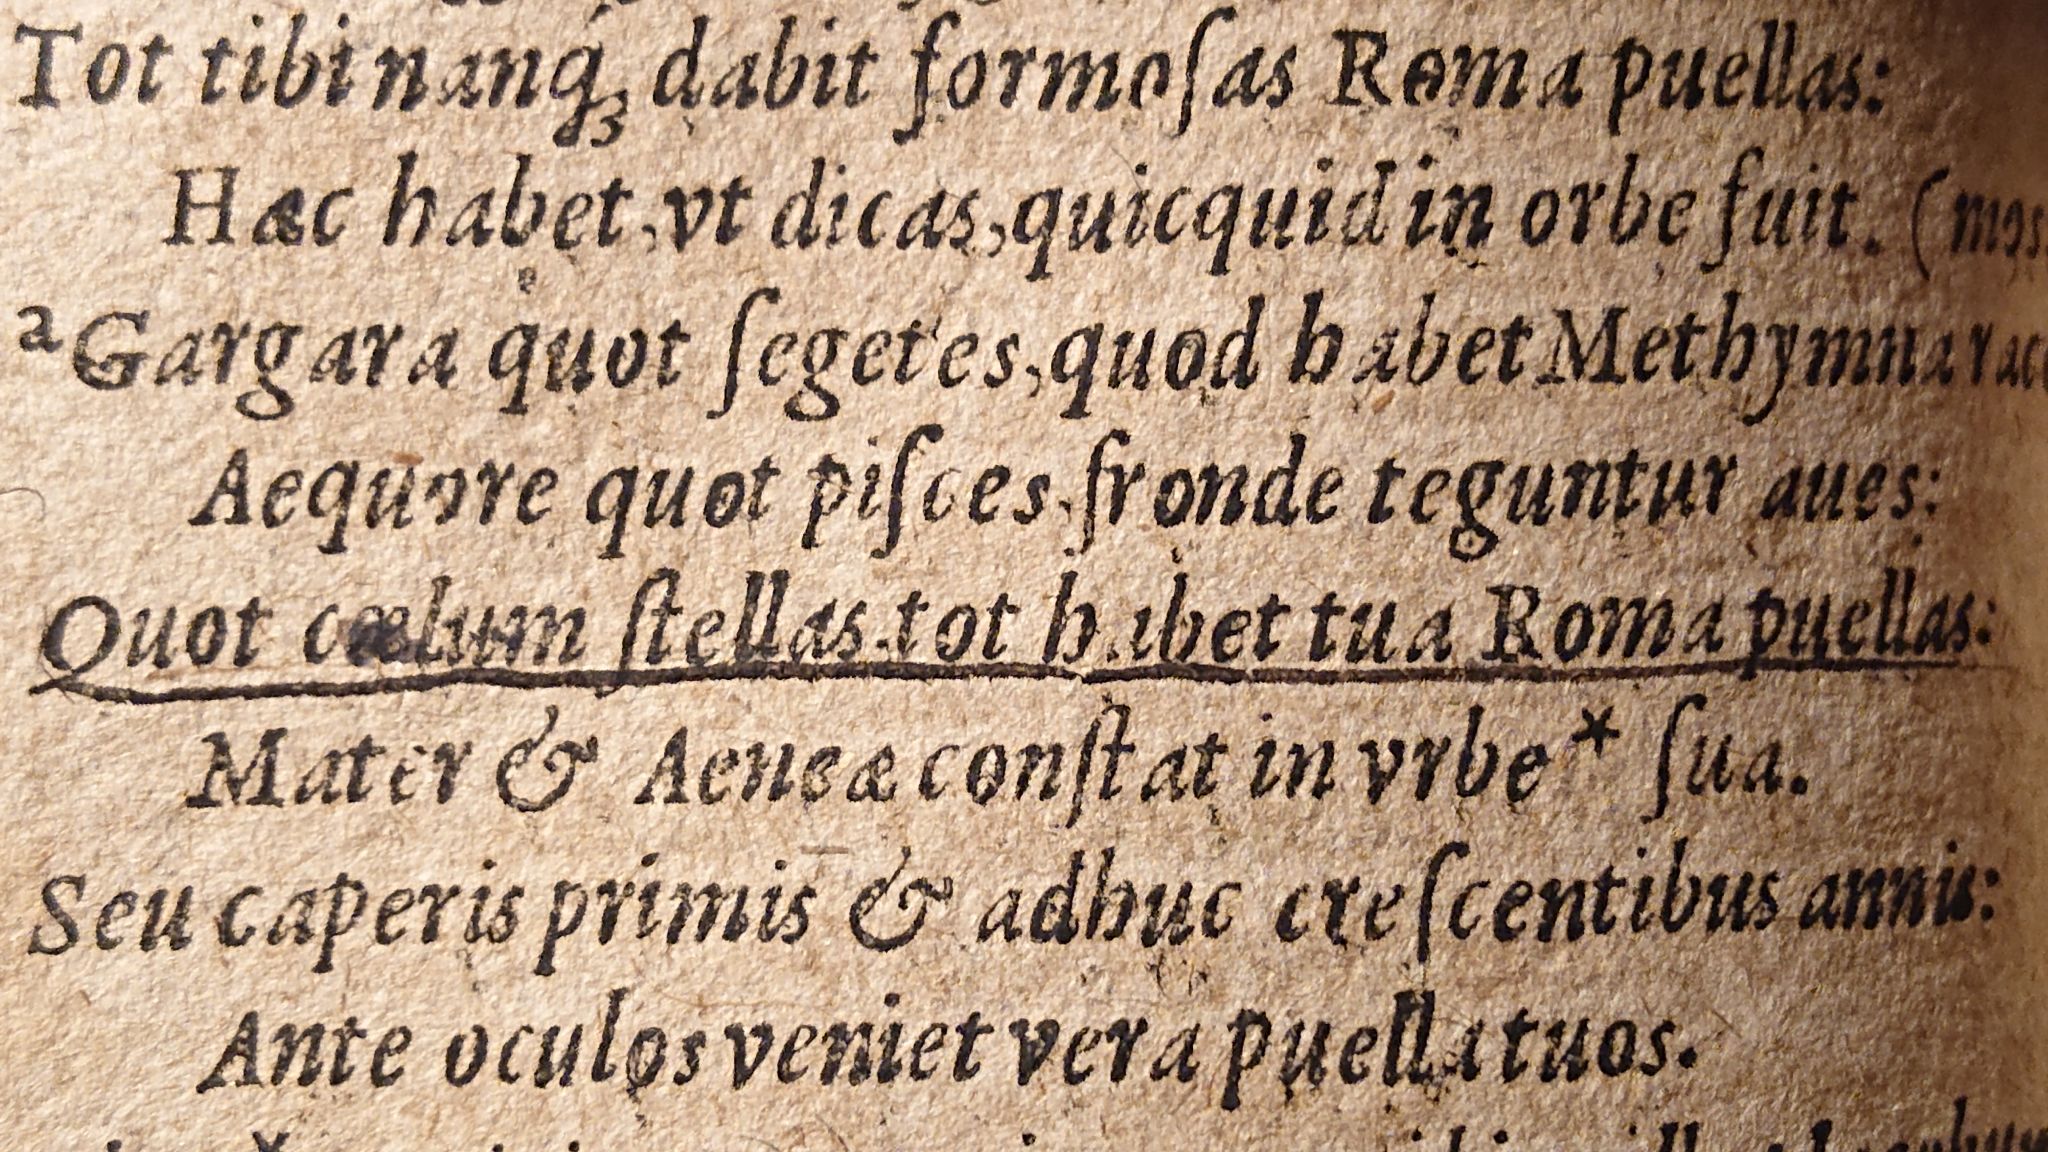 Tot tibi nanq́ꝫ dabit formoſas Roma puellas:
Hæc habet, vt dicas, quicquid in orbe fuit. (mos.
a Gargara quot ſegetes, quod habet Methymna race
Aequore quot piſces, fronde teguntur aues:
Quot cœlum ſtellas, tot habet tua Roma puellas:
Mater & Aeneæ conſtat in vrbe * ſua.
Seu caperis primis & adhuc creſcentibus annis:
Ante oculos veniet vera puella tuos.